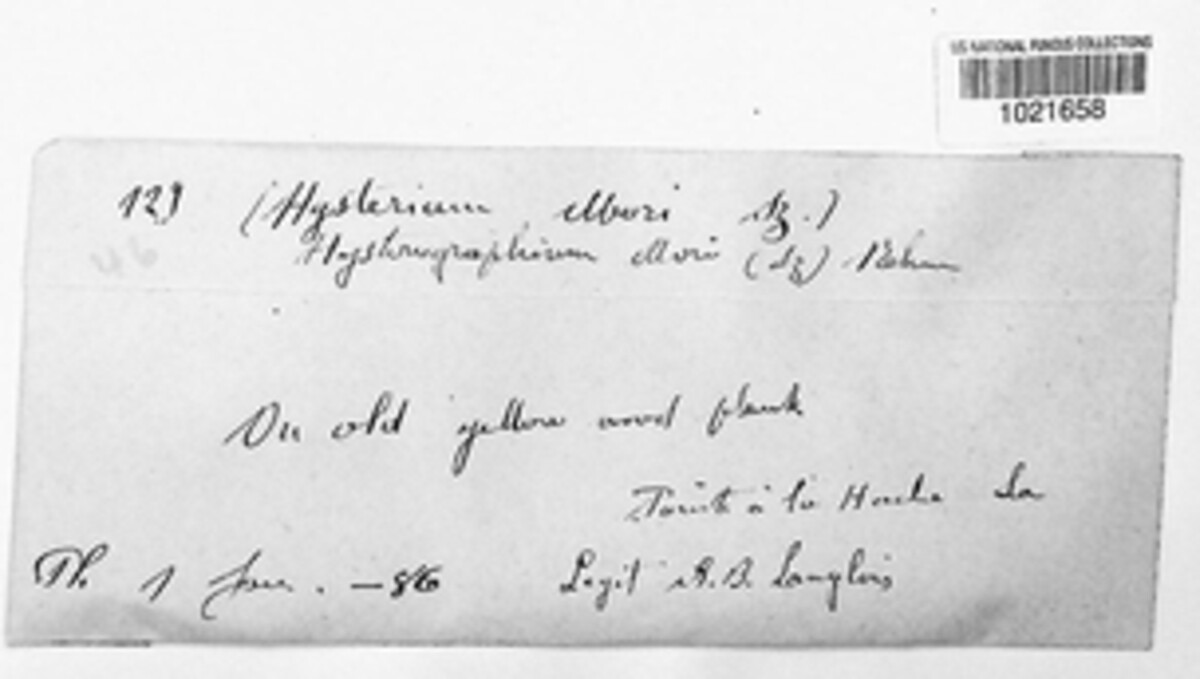 US NATIONAL FUNGUS COLLECTIONS
1021658
129 (Hysterium Mori Sz.)
Hysterographium Mori (Sz) Rehm
46
On old yellow wood plank
Pointe à la Hache La
1 Jan. - 86 Legit A.B. Langlois